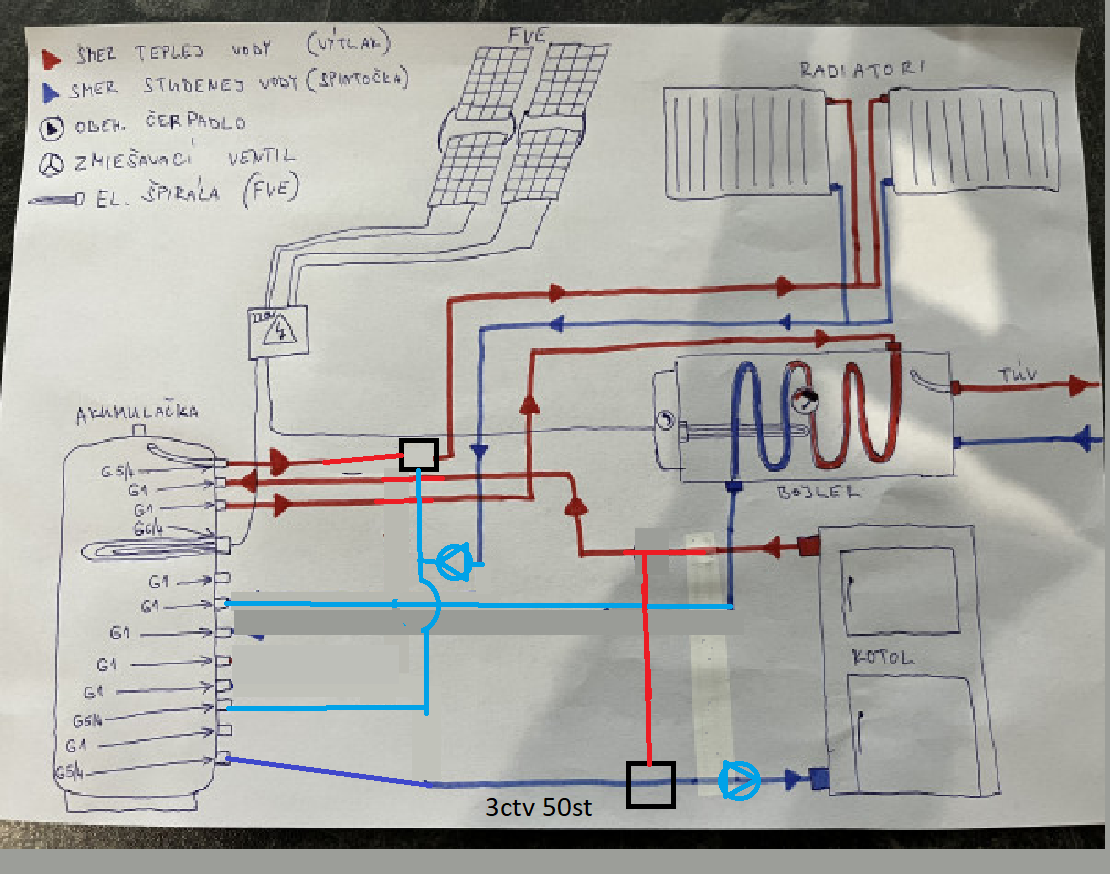 SMER TEPLEJ VODY (VÝTLAK)
SMER STUDENEJ VODY (SPIATOČKA)
OBEH. ČERPADLO
ZMIEŠAVACÍ VENTIL
EL. ŠPIRÁLA (FVE)
FVE
RADIATORI
220V
AKUMULAČKA
G5/4
G1
G1
G6/4
G1
G1
G1
G1
G1
G5/4
G1
G5/4
TÚV
BOJLER
KOTOL
3ctv 50st